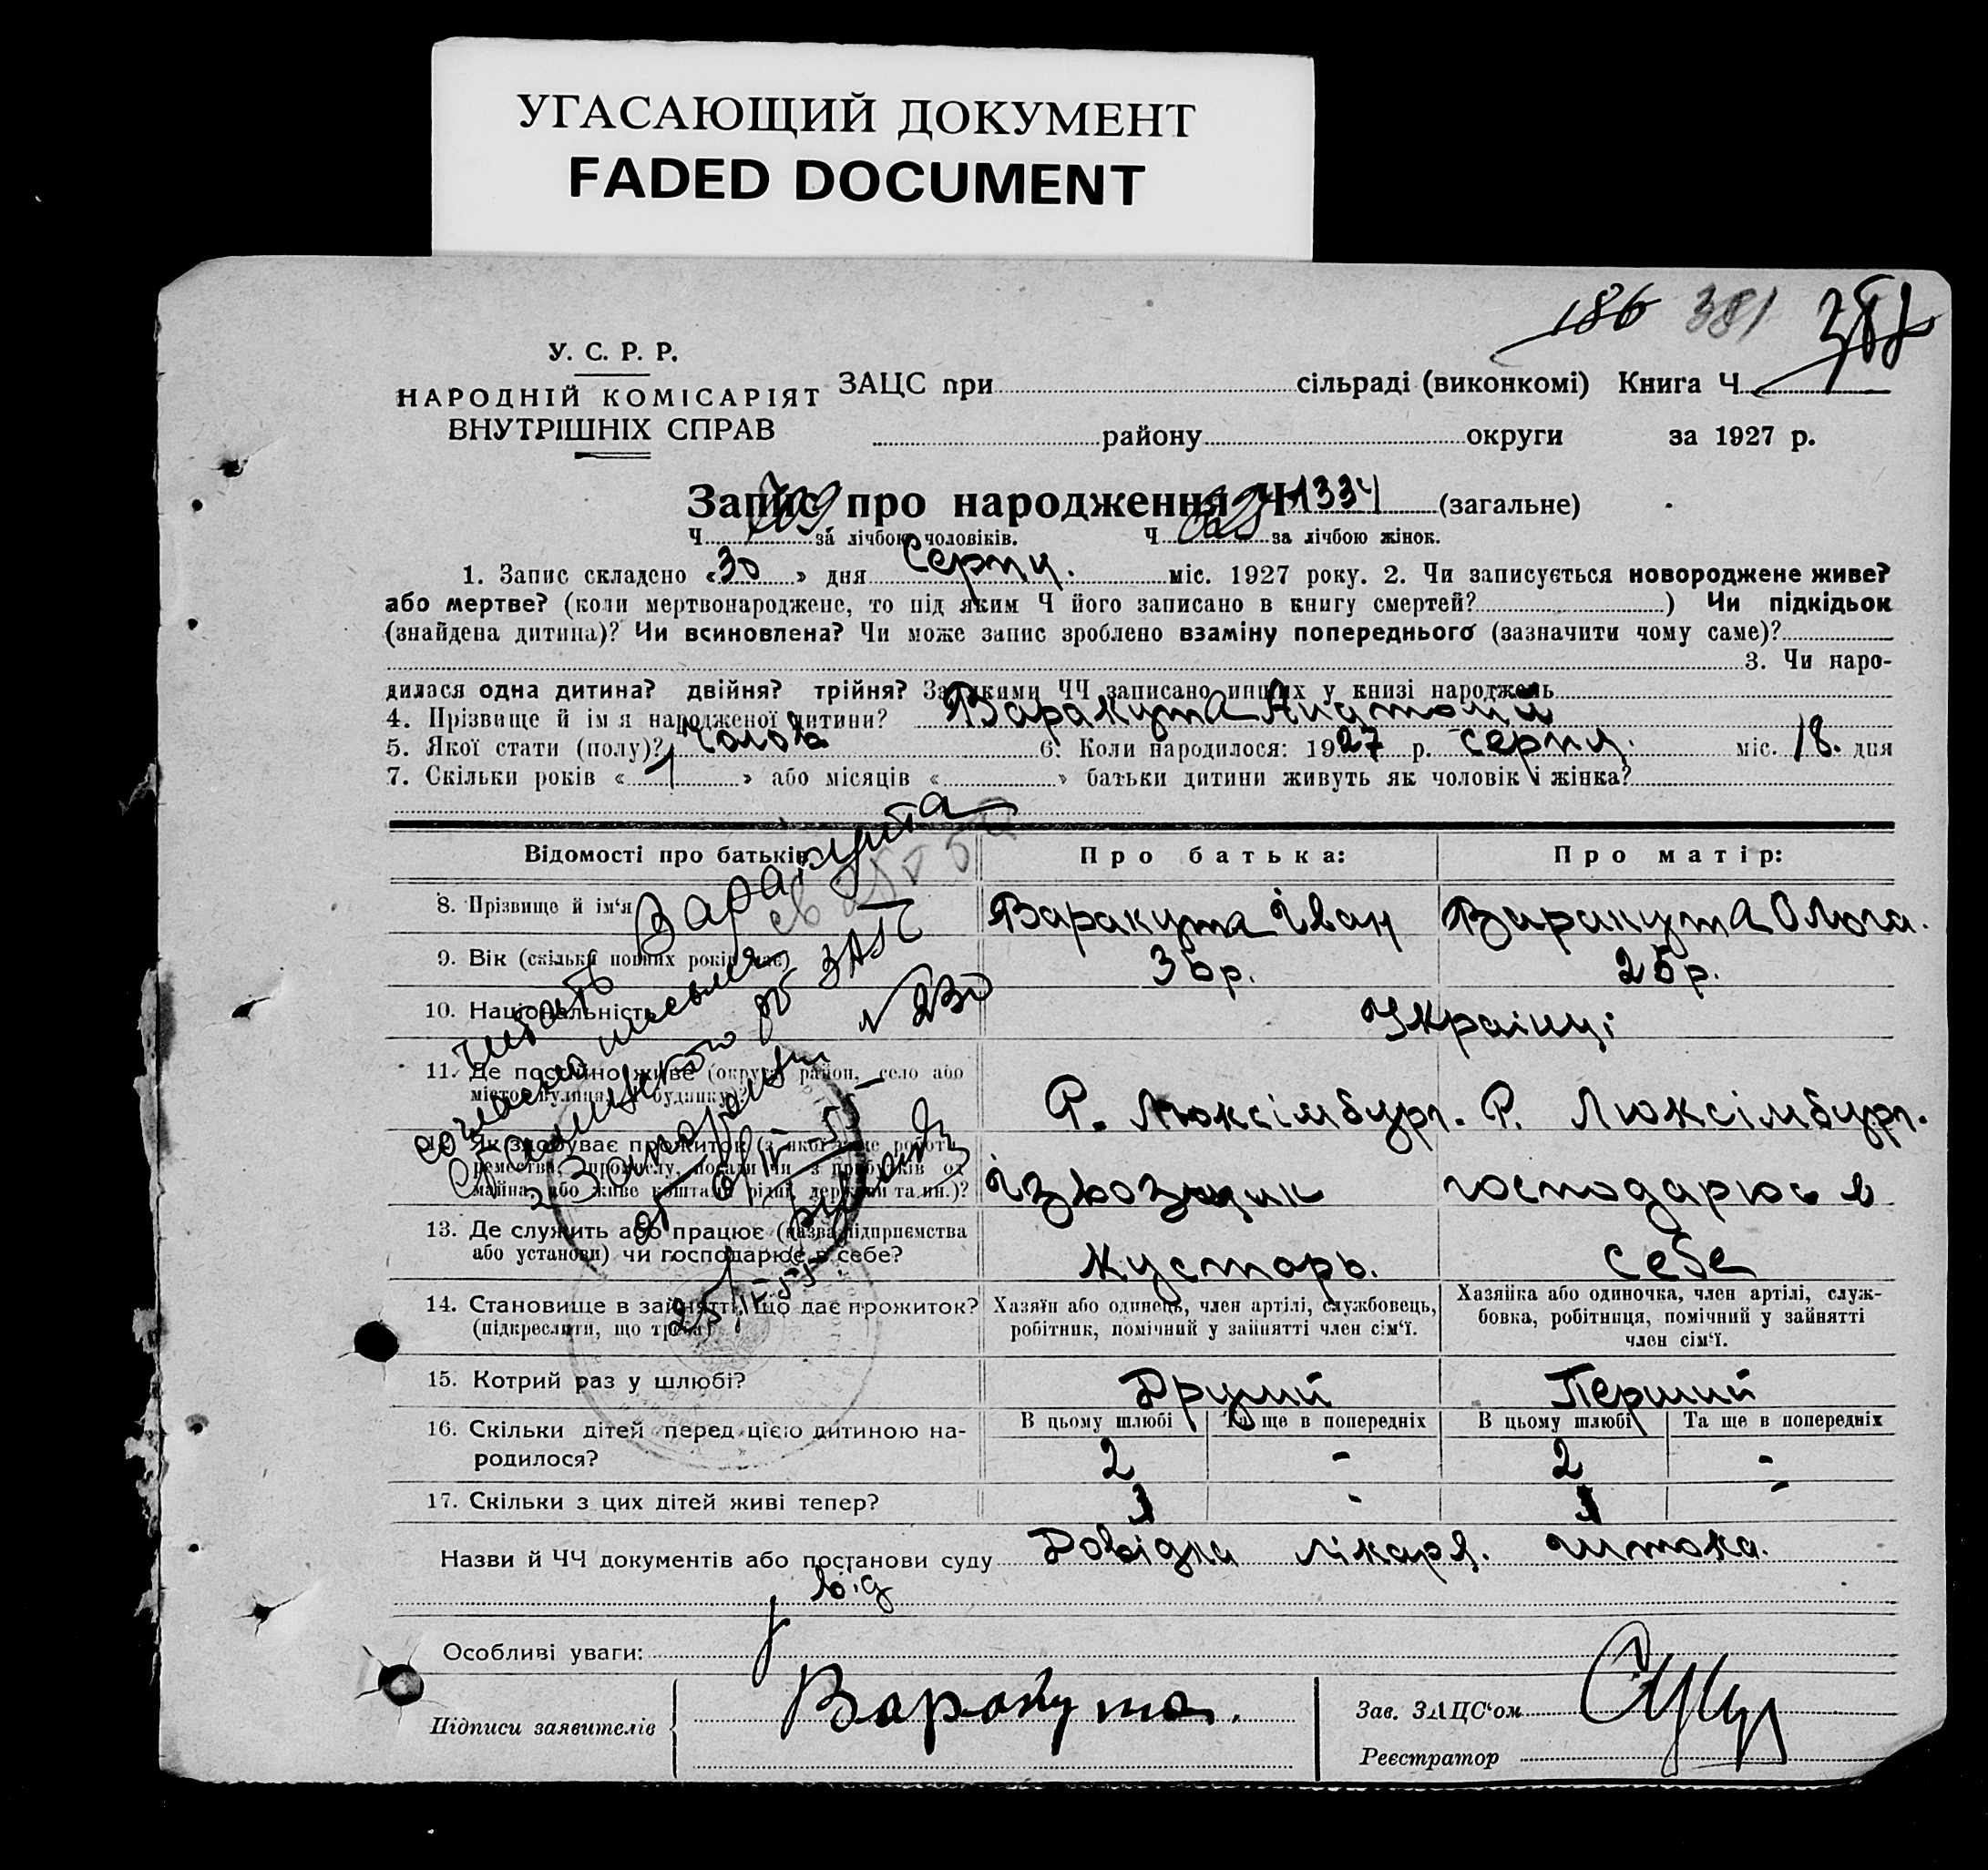 УГАСАЮЩИЙ ДОКУМЕНТ
FADED DOCUMENT
186 381
У. С. Р. Р.
НАРОДНІЙ КОМІСАРІЯТ
ВНУТРІШНІХ СПРАВ
ЗАЦС при сільраді (виконкомі) Книга Ч
району округи за 1927 р.
Запис про народження Ч 1334 (загальне)
Ч 709 за лічбою чоловіків. Ч за лічбою жінок.
1. Запис складено «30» дня Серпн. міс. 1927 року. 2. Чи записується новороджене живе?
або мертве? (коли мертвонароджене, то під яким Ч його записано в книгу смертей? ) Чи підкідьок
(знайдена дитина)? Чи всиновлена? Чи може запис зроблено взаміну попереднього (зазначити чому саме)?
3. Чи наро-
дилася одна дитина? двійня? трійня? За якими ЧЧ записано инших у книзі народжень
4. Прізвище й ім'я народженої дитини? Варакута Анатолій
5. Якої стати (полу)? Чолов. 6. Коли народилося: 1927 р. серпн. міс. 18. дня
7. Скільки років «1» або місяців « » батьки дитини живуть як чоловік і жінка?
Відомості про батьків Про батька: Про матір:
8. Прізвище й ім'я Варакута Іван Варакута Ольга.
9. Вік (скільки повних років має) 36р. 25р.
10. Національність Українці
11. Де постійно живе (округа, район, село або
місто, вулиця, Ч будинку)? Р. Люксімбург. Р. Люксімбург.
12. Як здобуває прожиток (з якої саме роботи,
ремества, промислу, посади чи з прибутків од
майна, або живе коштами рідні, держави та ин.)? ізвозщик господарює в
13. Де служить або працює (назва підприємства
або установи) чи господарює в себе? Кустарь. себе
14. Становище в зайнятті, що дає прожиток?
(підкреслити, що треба)
Хазяїн або одинець, член артілі, службовець,
робітник, помічний у зайнятті член сім'ї.
Хазяйка або одиночка, член артілі, служ-
бовка, робітниця, помічний у зайнятті
член сім'ї.
15. Котрий раз у шлюбі? Другий Перший
В цьому шлюбі Та ще в попередніх В цьому шлюбі Та ще в попередніх
16. Скільки дітей перед цією дитиною на-
родилося? 2 - 2 -
17. Скільки з цих дітей живі тепер? - -
Назви й ЧЧ документів або постанови суду Довідка лікаря. Штока.
від
Особливі уваги:
Підписи заявителів Варакута. Зав. ЗАЦС'ом
Реєстратор
читать Варакута
согласно письма